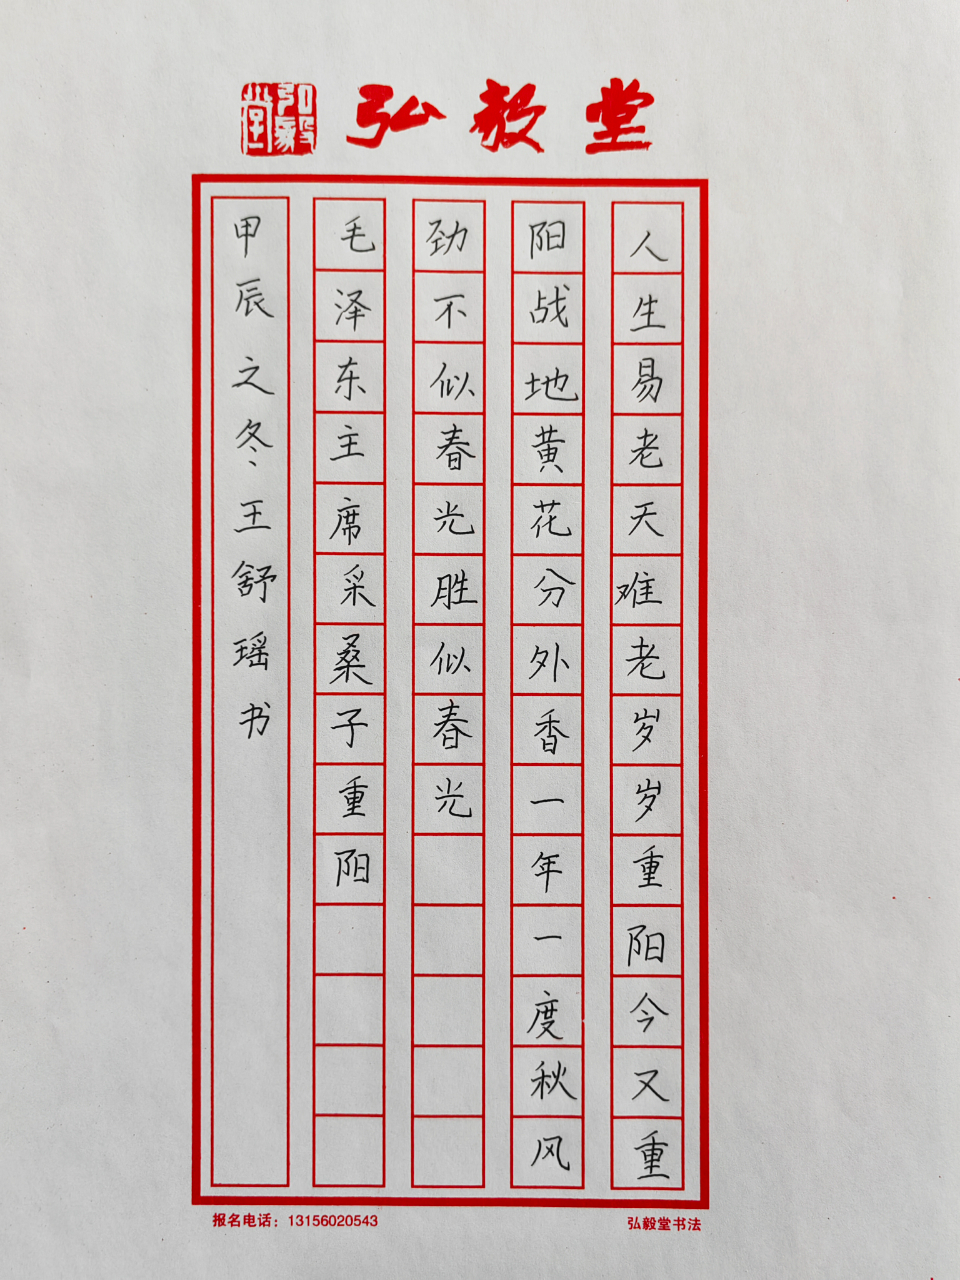 弘毅堂
弘毅堂
人生易老天难老岁岁重阳今又重
阳战地黄花分外香一年一度秋风
劲不似春光胜似春光
毛泽东主席采桑子重阳
甲辰之冬王舒瑶书
报名电话：13156020543
弘毅堂书法